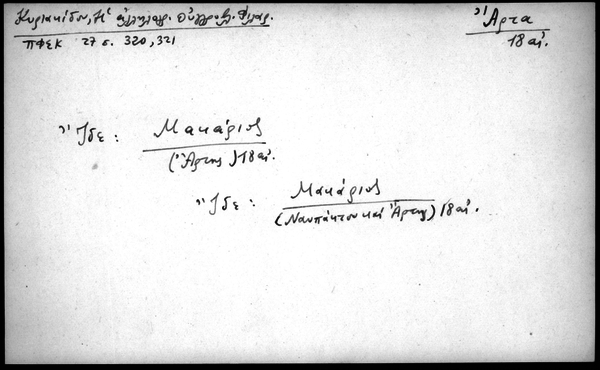 Κυριακίδου, Ἡ ἀλληλογρ.
ΠΦΣΚ 27 σ. 320, 321
Ἄρτα
18 αἰ.
Ἴδε: Μακάριος
(Ἄρτης) 18 αἰ.
Ἴδε: Μακάριος
(Ναυπάκτου καὶ Ἄρτης) 18 αἰ.